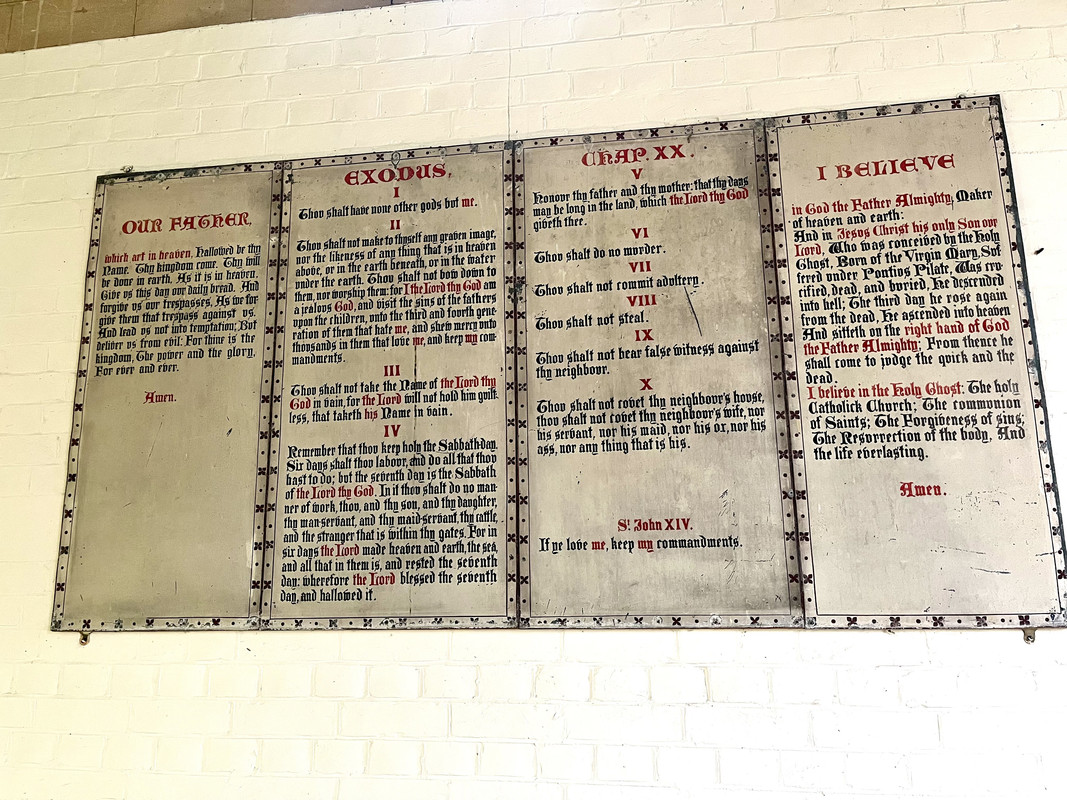 OUR FATHER,
which art in heaven, Hallowed be thy
Name. Thy kingdom come. Thy will
be done in earth, As it is in heaven.
Give us this day our daily bread. And
forgive us our trespasses, As we for-
give them that trespass against us.
And lead us not into temptation; But
deliver us from evil: For thine is the
kingdom, The power and the glory,
For ever and ever.
Amen.
EXODUS,
I
Thou shalt have none other gods but me.
II
Thou shalt not make to thyself any graven image,
nor the likeness of any thing that is in heaven
above, or in the earth beneath, or in the water
under the earth. Thou shalt not bow down to
them, nor worship them: for I the Lord thy God am
a jealous God, and visit the sins of the fathers
upon the children, unto the third and fourth gene-
ration of them that hate me, and shew mercy unto
thousands in them that love me, and keep my com-
mandments.
III
Thou shalt not take the Name of the Lord thy
God in vain, for the Lord will not hold him guilt-
less, that taketh his Name in vain.
IV
Remember that thou keep holy the Sabbath-day.
Six days shalt thou labor, and do all that thou
hast to do; but the seventh day is the Sabbath
of the Lord thy God. In it thou shalt do no man-
ner of work, thou, and thy son, and thy daughter,
thy man-servant, and thy maid-servant, thy cattle,
and the stranger that is within thy gates. For in
six days the Lord made heaven and earth, the sea,
and all that in them is, and rested the seventh
day: wherefore the Lord blessed the seventh
day, and hallowed it.
CHAP. XX.
V
Honour thy father and thy mother: that thy days
may be long in the land, which the Lord thy God
giveth thee.
VI
Thou shalt do no murder.
VII
Thou shalt not commit adultery.
VIII
Thou shalt not steal.
IX
Thou shalt not bear false witness against
thy neighbour.
X
Thou shalt not covet thy neighbour's house,
thou shalt not covet thy neighbour's wife, nor
his servant, nor his maid, nor his ox, nor his
ass, nor any thing that is his.
St. John XIV.
If ye love me, keep my commandments.
I BELIEVE
in God the Father Almighty, Maker
of heaven and earth:
And in Jesus Christ his only Son our
Lord, Who was conceived by the Holy
Ghost, Born of the Virgin Mary, Suf-
fered under Pontius Pilate, Was cru-
cified, dead, and buried, He descended
into hell; The third day he rose again
from the dead, He ascended into heaven
And sitteth on the right hand of God
the Father Almighty; From thence he
shall come to judge the quick and the
dead.
I believe in the Holy Ghost: The holy
Catholick Church; The communion
of Saints; The Forgiveness of sins;
The Resurrection of the body, And
the life everlasting.
Amen.